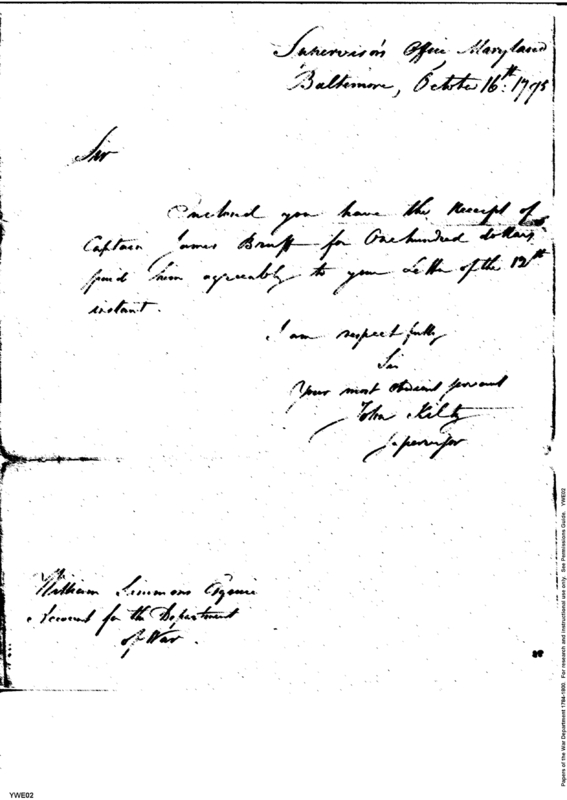 Supervisor's Office Maryland
Baltimore, October 16th: 1795
Sir
Enclosed you have the Receipt of
Captain James Bruff for One hundred dollars,
paid him agreeably to your Letter of the 12th
instant.
I am respectfully
Sir
Your most obedient servant
John Kilty
Supervisor
William Simmons Esquire
Account for the Department
of War.
Papers of the War Department 1784-1800. For research and instructional use only. See Permissions Guide. YWE02
YWE02